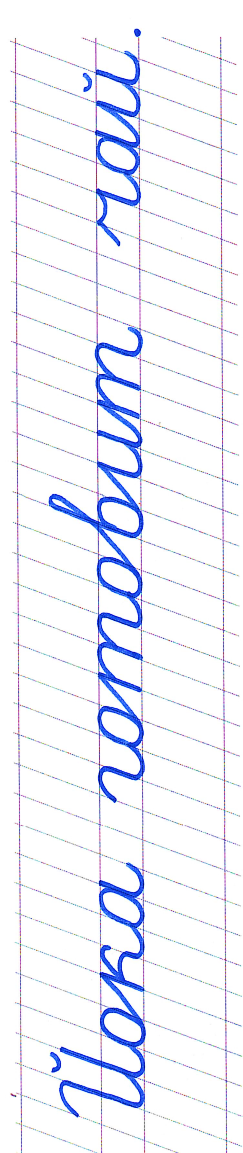 Йока готовит чай.